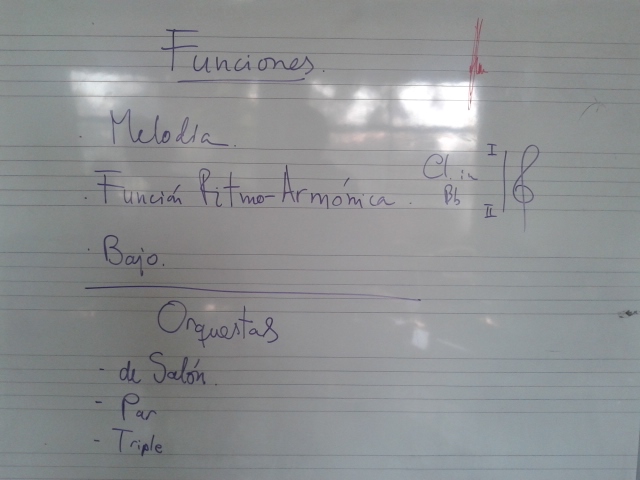 Funciones.
· Melodía.
· Función Ritmo-Armónica.
Cl. in I
Bb II
· Bajo.
Orquestas
- de Salón.
- Par
- Triple